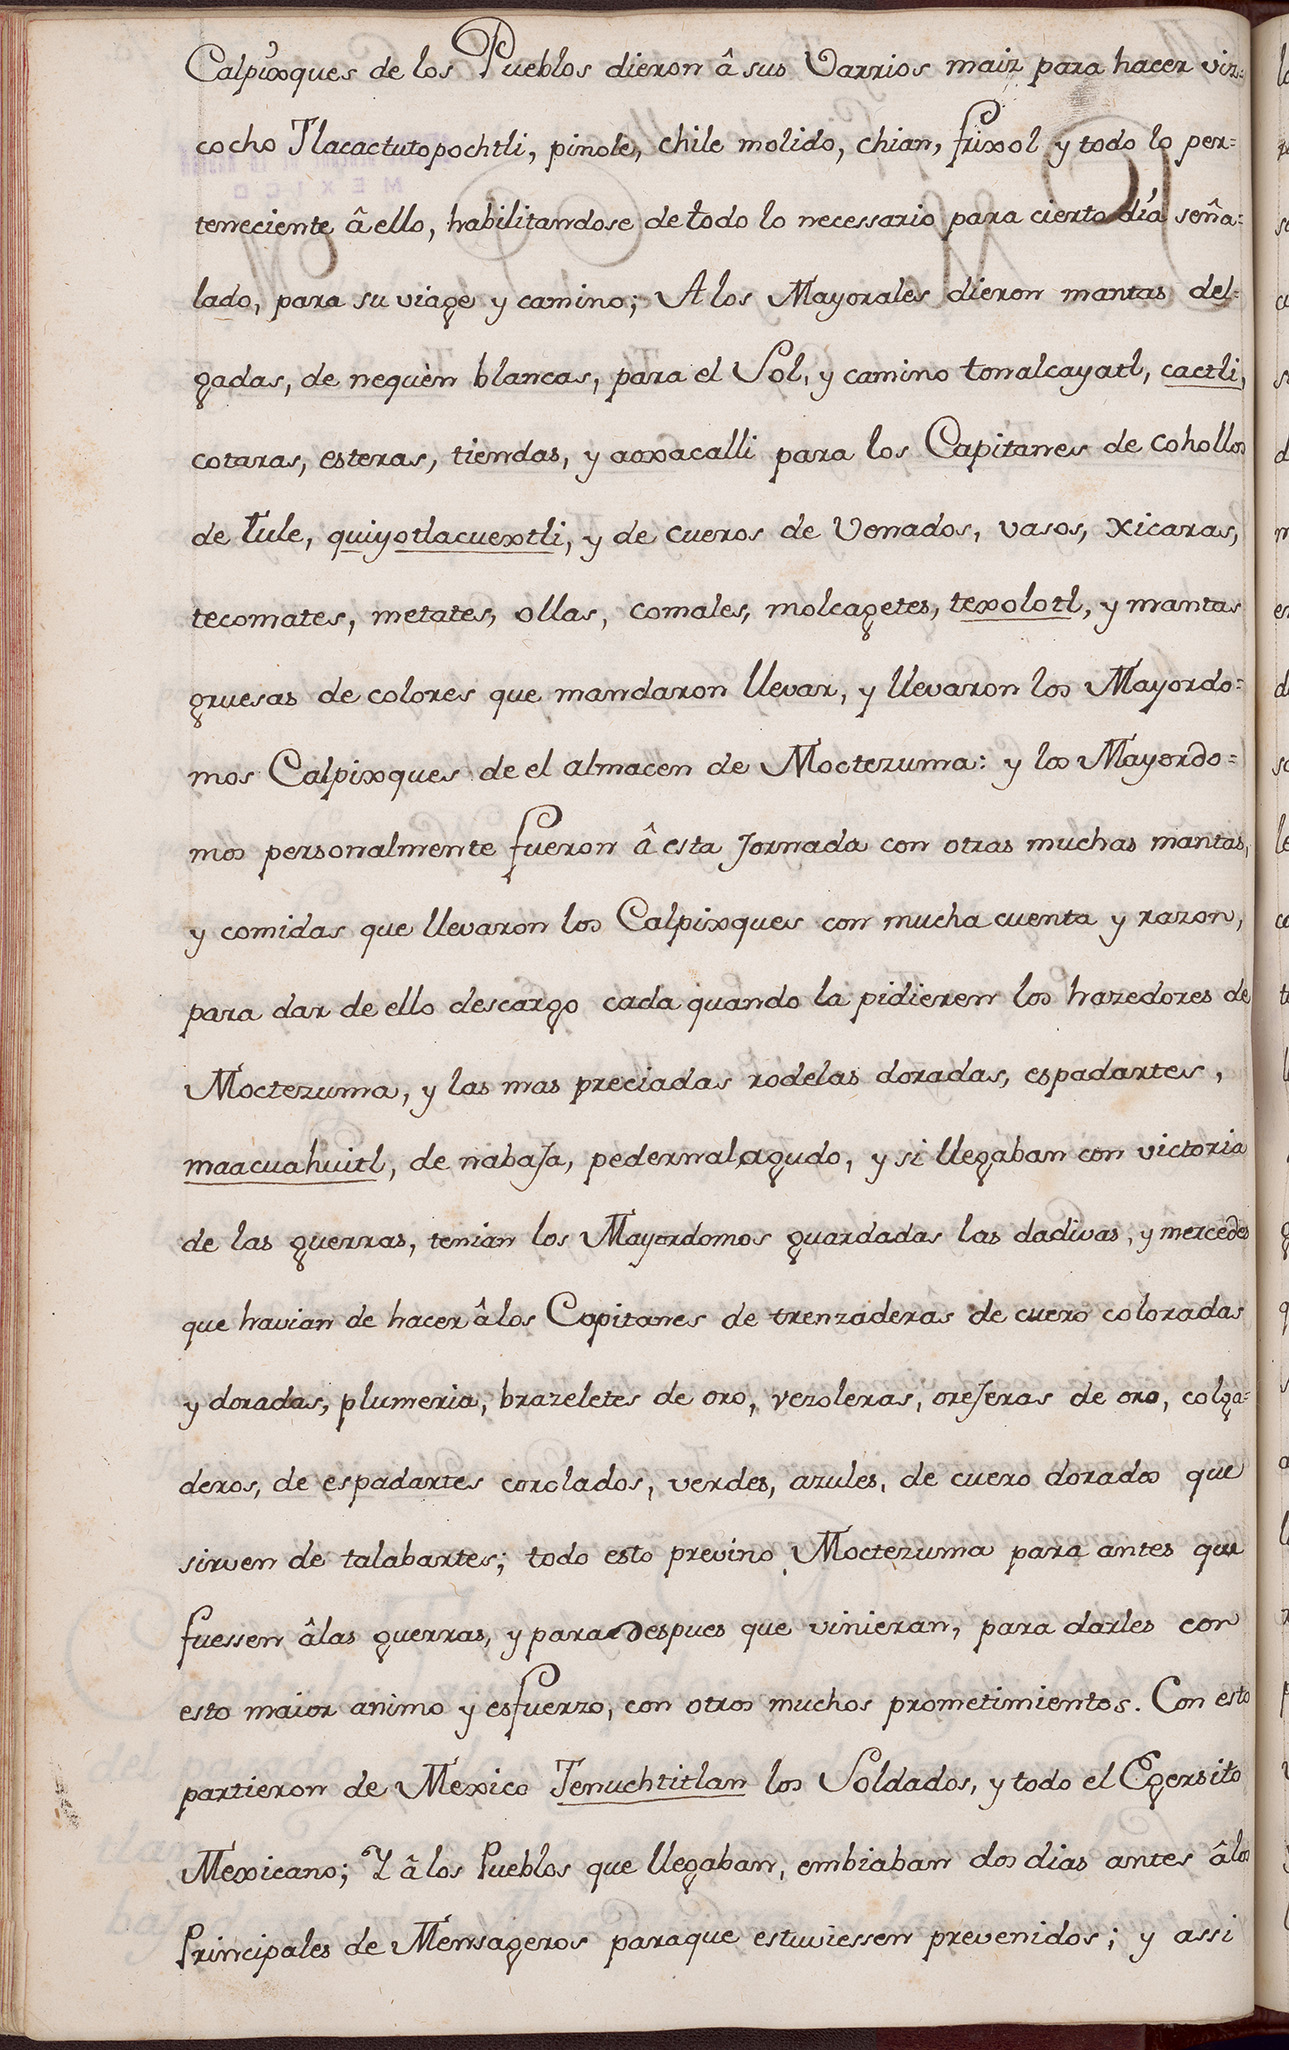 Calpixques de los Pueblos dieron â sus Varrios maiz para hacer viz=
cocho Tlacactutopochtli, pinole, chile molido, chian, frixol y todo lo per=
teneciente â ello, habilitandose de todo lo necessario para cierto día seña=
lado, para su viage y camino; A los Mayorales dieron mantas del=
gadas, de nequèn blancas, para el Sol, y camino tonalcayatl, cactli,
cotaras, esteras, tiendas, y aoxacalli para los Capitanes de cohollos
de tule, quiyotlacuextli, y de cueros de Venados, vasos, xicaras,
tecomates, metates, ollas, comales, molcagetes, texolotl, y mantas
gruesas de colores que mandaron llevar, y llevaron los Mayordo=
mos Calpixques de el almacen de Moctezuma: y los Mayordo=
mos personalmente fueron â esta Jornada con otras muchas mantas,
y comidas que llevaron los Calpixques con mucha cuenta y razon,
para dar de ello descargo cada quando la pidieren los hazedores de
Moctezuma, y las mas preciadas rodelas doradas, espadartes,
maacuahuitl, de nabaja, pedernal agudo, y si llegaban con victoria
de las guerras, tenian los Mayordomos guardadas las dadivas, y mercedes
que havian de hacer â los Capitanes de trenzaderas de cuero coloradas
y doradas, plumeria, brazeletes de oro, vezoleras, orejeras de oro, colga=
deros, de espadartes corolados, verdes, azules, de cuero dorados que
sirven de talabartes; todo esto previno Moctezuma para antes que
fuessen âlas guerras, y para despues que vinieran, para darles con
esto maior animo y esfuerzo, con otros muchos prometimientos. Con esto
partieron de Mexico Tenuchtitlan los Soldados, y todo el Egersito
Mexicano; Y â los Pueblos que llegaban, embiaban dos dias antes â los
Principales de Mensageros paraque estuviessen prevenidos; y assi